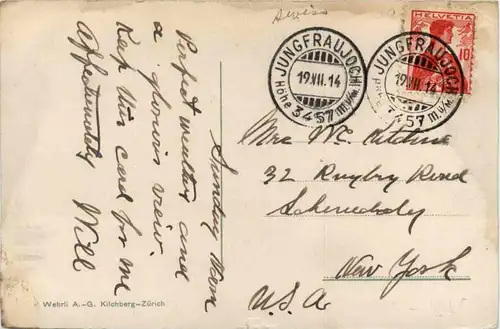 Swiss
HELVETIA
10
JUNGFRAUJOCH
19.VII.14
Höhe 3457 m.ü/M.
JUNGFRAUJOCH
19.VII.14
Höhe 3457 m.ü/M.
Sunday Noon
Perfect weather and
a glorious view.
Keep this card for me
Affectionately Will
Mrs. Wm.
32 Rugby Road
Schenectady
New York
U.S.A
Wehrli A.-G. Kilchberg-Zürich